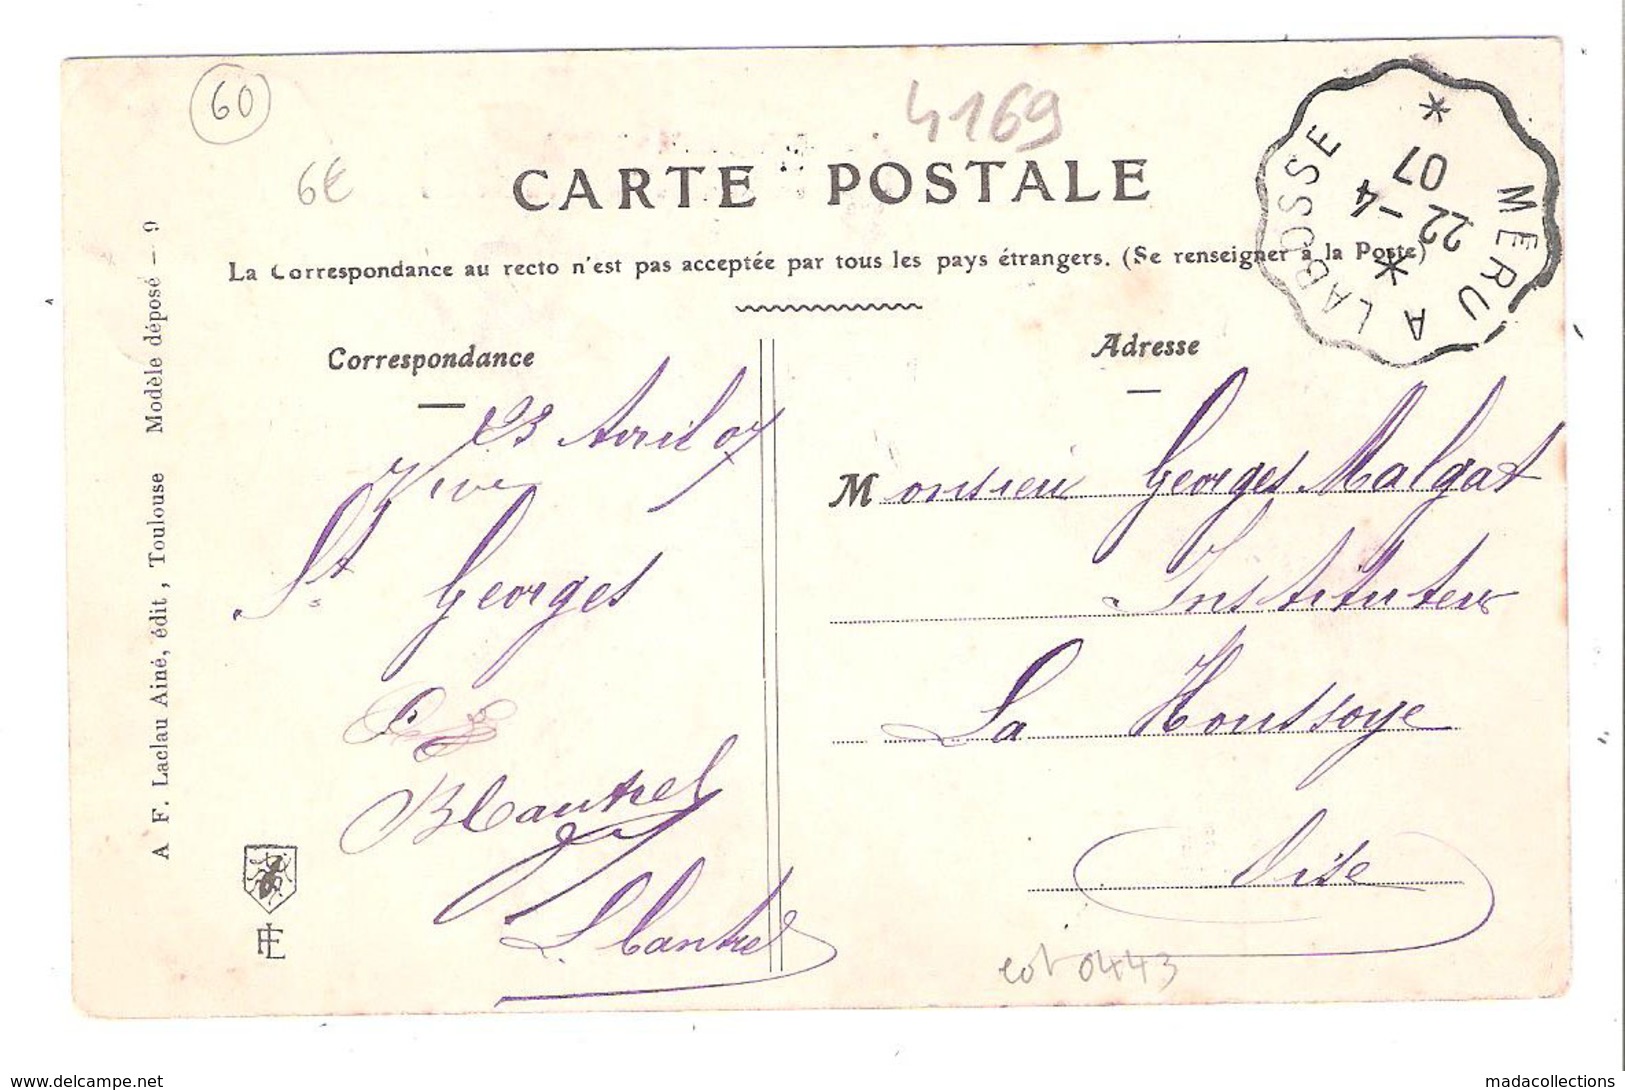 60
4169
6€
CARTE POSTALE
La Correspondance au recto n'est pas acceptée par tous les pays étrangers. (Se renseigner à la Poste)
MERU A LABOSSE
22-4
07
Correspondance
23 Avril 07
Vive
St Georges
Cantrel
L Cantrel
Adresse
Monsieur Georges Malgat
Instituteur
La Houssoye
Oise
0443
A F. Laclau Ainé, édit, Toulouse Modèle déposé — 9
madacollections